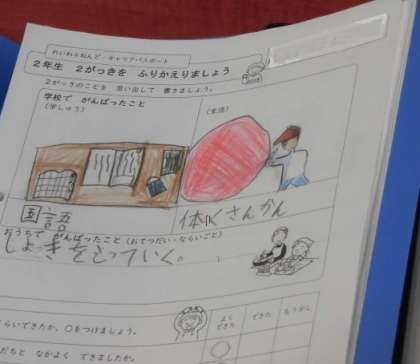 れいわ６ねんど・キャリアパスポート
２年生　２がっきを　ふりかえりましょう
２がっきのことを　思い出して　書きましょう。
学校で　がんばったこと
（学しゅう）
（生活）
国語
体Ⅸさんかん
おうちで　がんばったこと（おてつだい・ならいごと）
しょっきをもっていく。
らいできたか、○をつけましょう。
よく
できた
できた
もう少し
だちと　なかよく　できましたか。